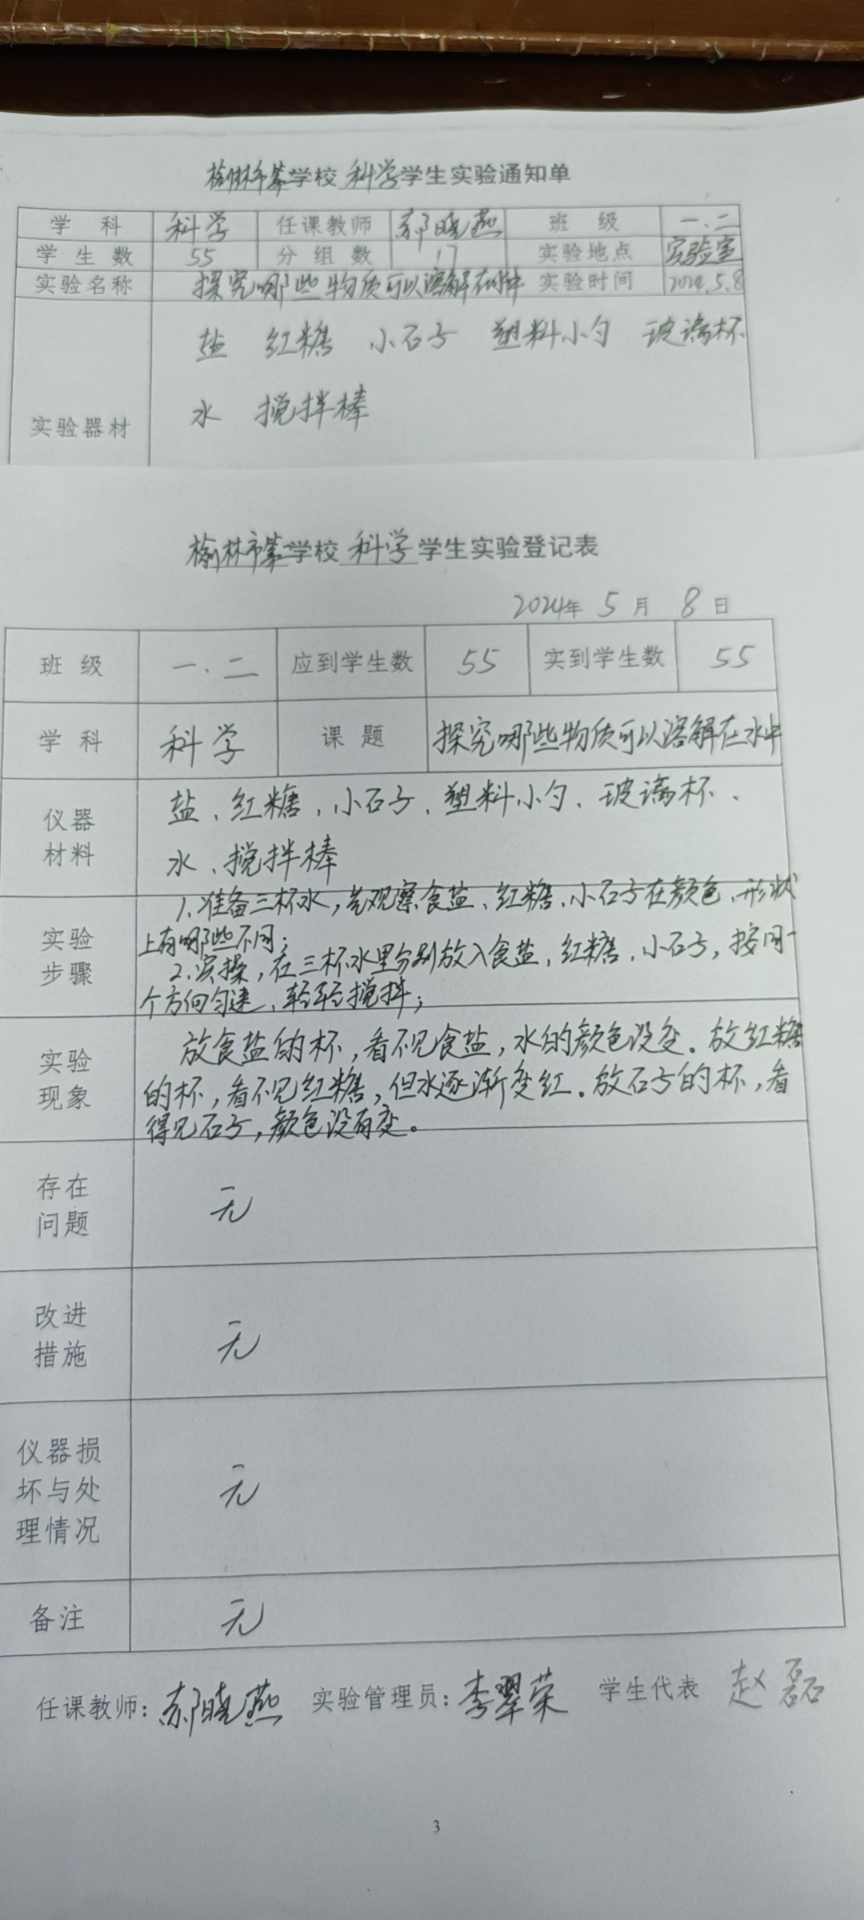 榆林市第 学校 科学 学生实验通知单
学 科 科学 任课教师 郝晓燕 班 级 一.二
学生数 55 分组数 17 实验地点 实验室
实验名称 探究哪些物质可以溶解在水中 实验时间 2024.5.8
盐 红糖 小石子 塑料小勺 玻璃杯
水 搅拌棒
实验器材
榆林市第 学校 科学 学生实验登记表
2024年 5 月 8 日
班 级 一.二 应到学生数 55 实到学生数 55
学 科 科学 课 题 探究哪些物质可以溶解在水中
仪器
材料
盐、红糖、小石子、塑料小勺、玻璃杯、
水、搅拌棒
实验
步骤
1.准备三杯水,先观察食盐、红糖、小石子在颜色、形状
上有哪些不同;
2.实操,在三杯水里分别放入食盐,红糖,小石子,按同一
个方向匀速、轻轻搅拌;
实验
现象
放食盐的杯,看不见食盐,水的颜色没变。放红糖
的杯,看不见红糖,但水逐渐变红。放石子的杯,看
得见石子,颜色没有变。
存在
问题
无
改进
措施
无
仪器损
坏与处
理情况
无
备注 无
任课教师:郝晓燕 实验管理员:李翠荣 学生代表 赵磊
3